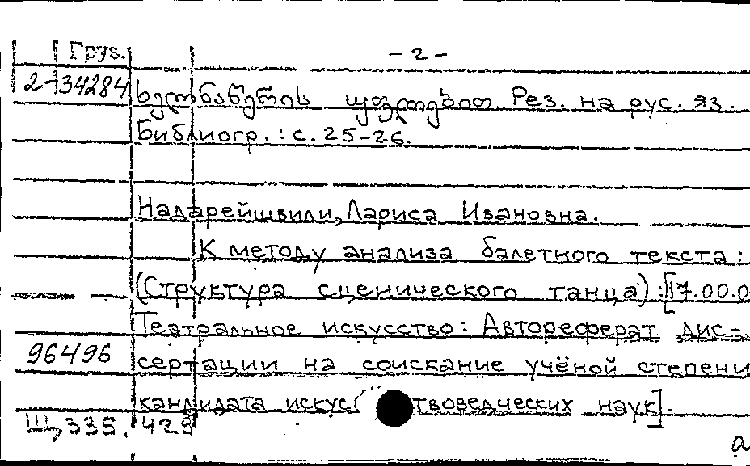 Груз. - 2 -
2-34284 ხელნაწერის უფლებით Рез. на рус. яз.
Библиогр.: с. 25-26.
Надарейшвили, Лариса Ивановна.
К методу анализа балетного текста:
(Структура сценического танца): [17.00.0
Театральное искусство: Автореферат дис-
96496 сертации на соискание учёной степени
кандидата искус твоведческих наук].
Щ, 335. 425
а